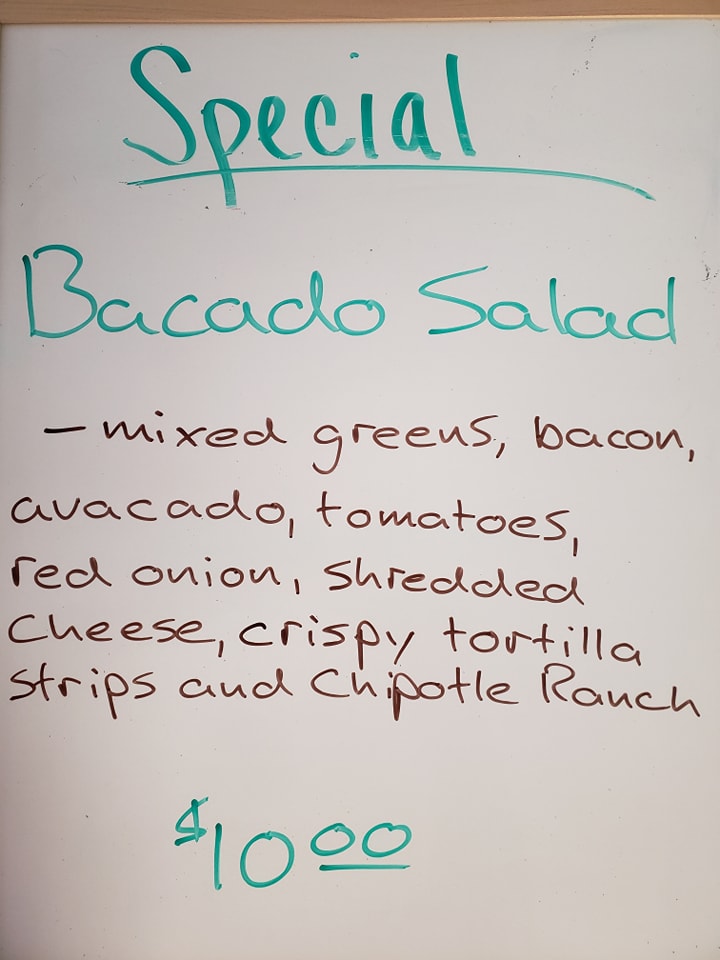 Special
Bacado Salad
- mixed greens, bacon,
avacado, tomatoes,
red onion, shredded
Cheese, crispy tortilla
strips and Chipotle Ranch
$10 00